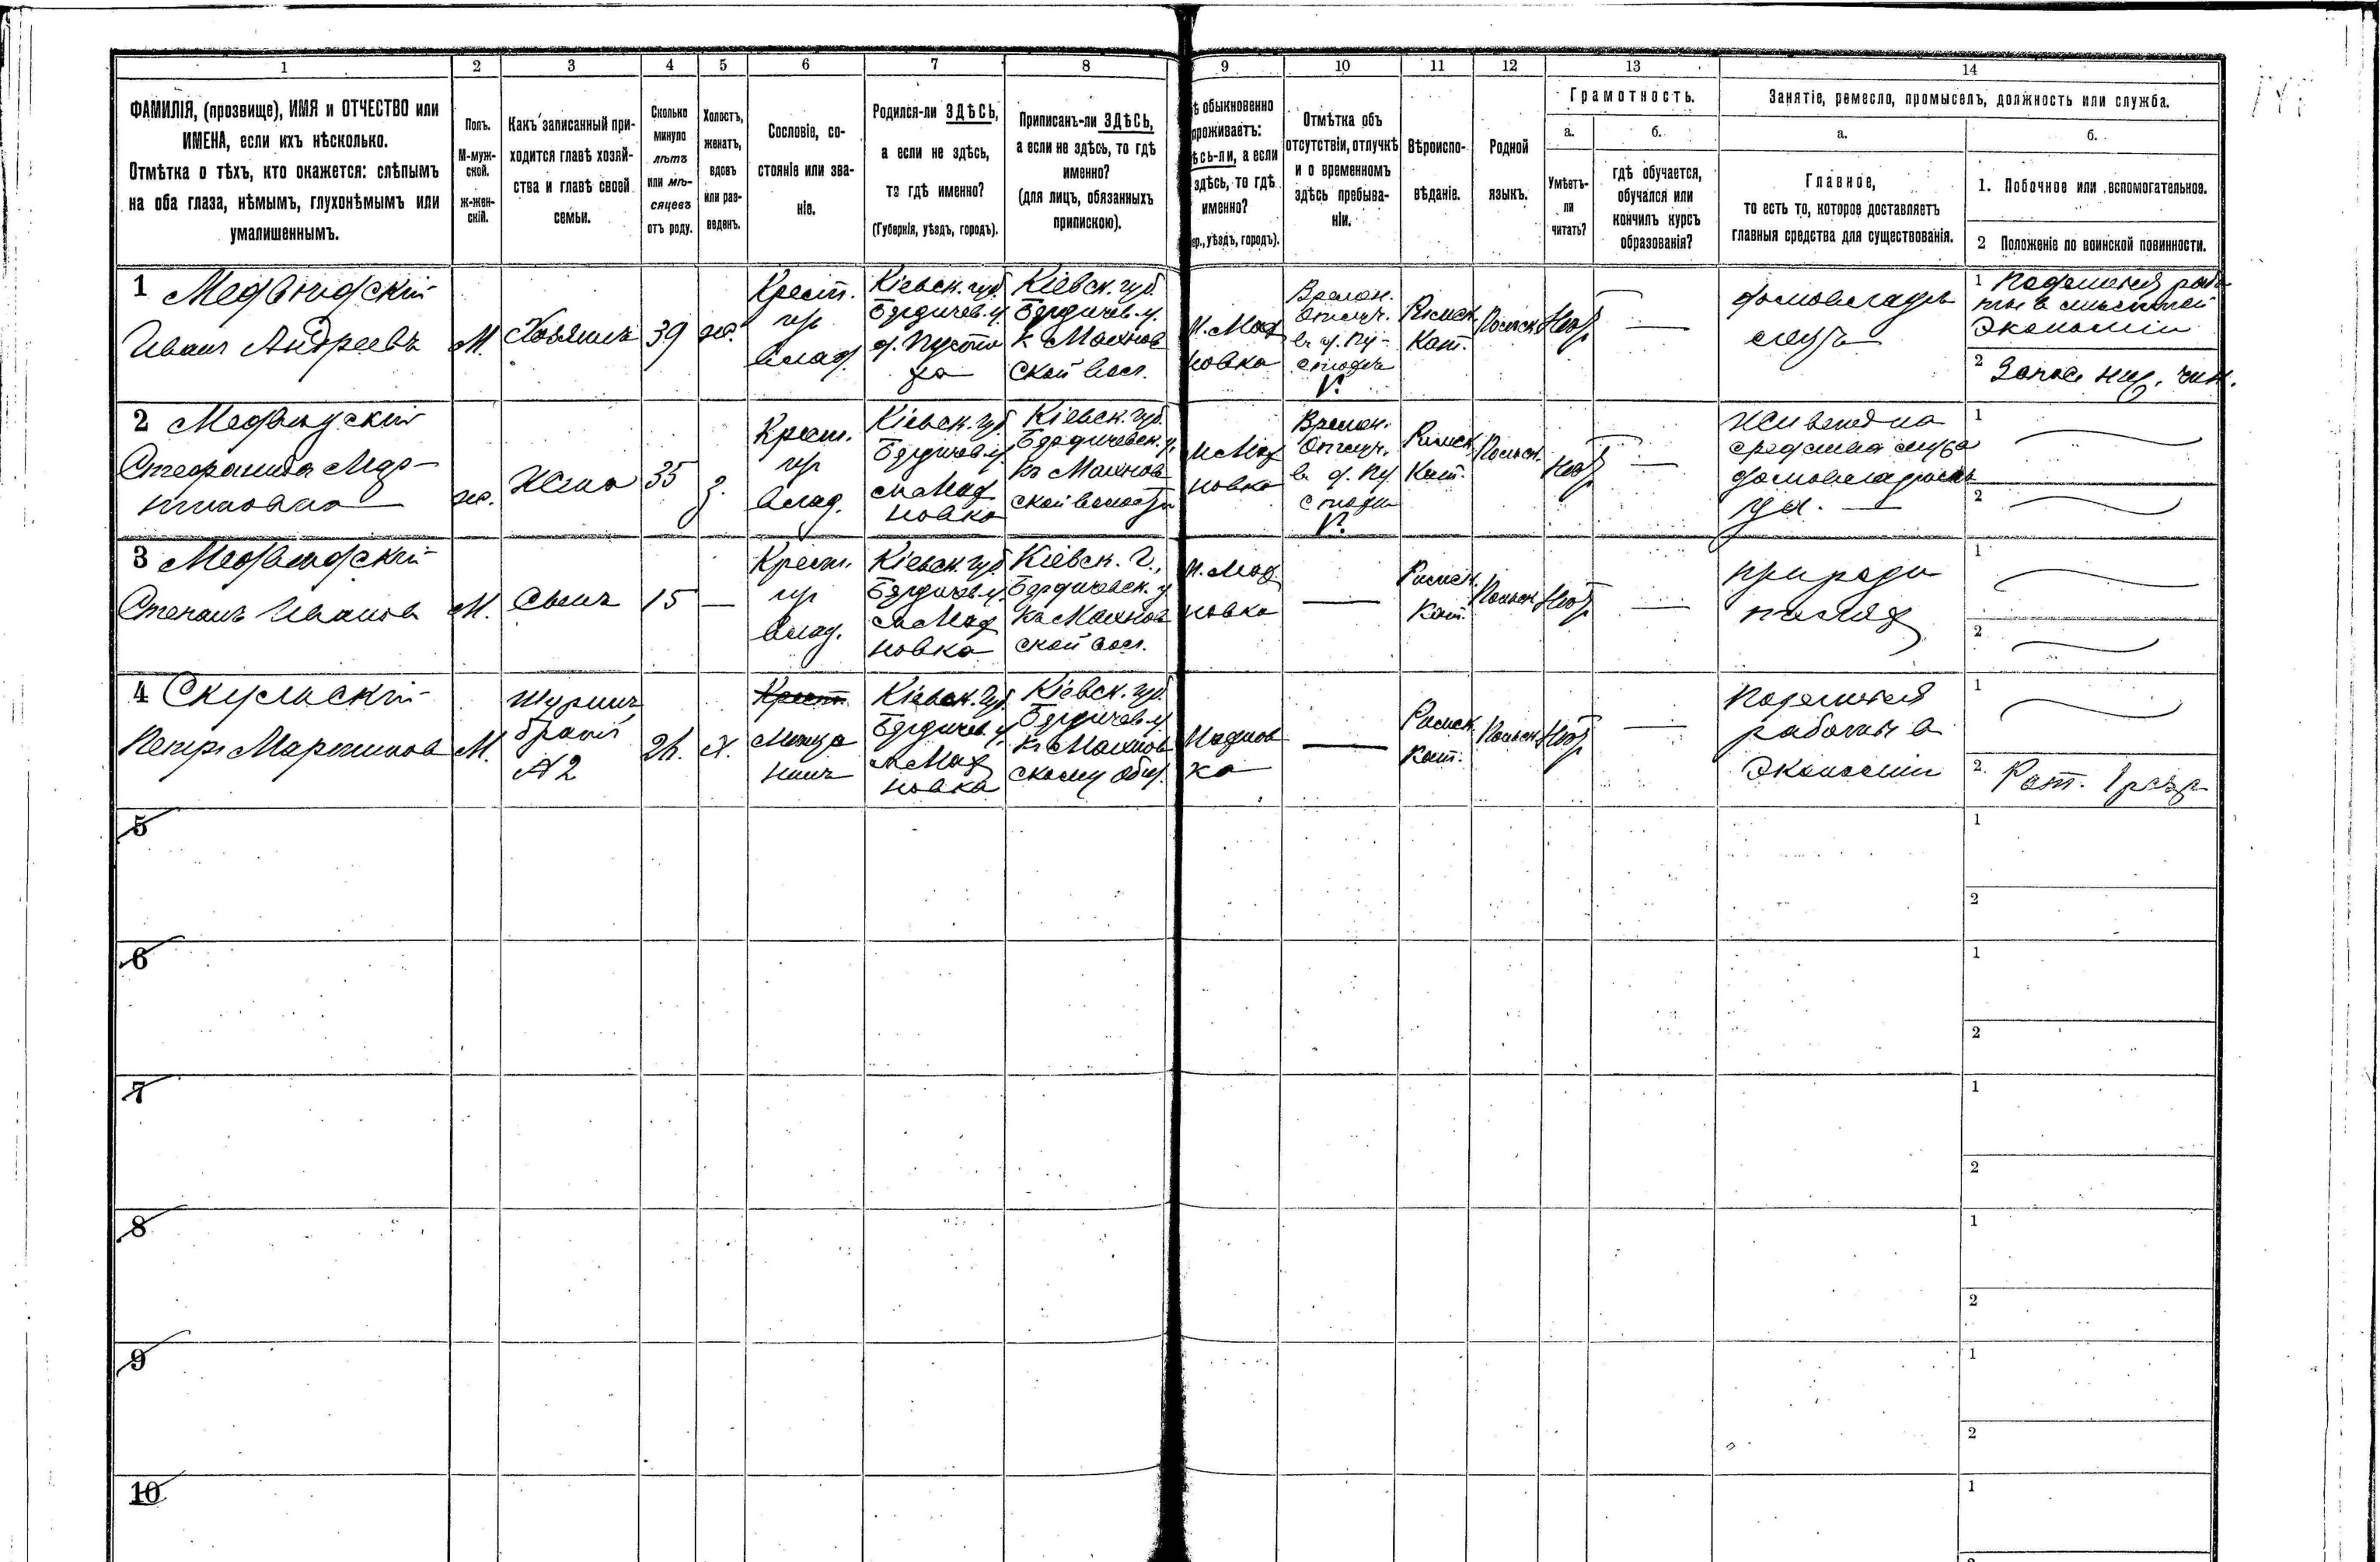 1 2 3 4 5 6 7 8 9 10 11 12 13 14
ФАМИЛІЯ, (прозвище), ИМЯ и ОТЧЕСТВО или
ИМЕНА, если ихъ нѣсколько.
Отмѣтка о тѣхъ, кто окажется: слѣпымъ
на оба глаза, нѣмымъ, глухонѣмымъ или
умалишеннымъ.
Полъ.
М-муж-
ской.
ж-жен-
скій.
Какъ записанный при-
ходится главѣ хозяй-
ства и главѣ своей
семьи.
Сколько
минуло
лѣтъ
или мѣ-
сяцевъ
отъ роду.
Холостъ,
женатъ,
вдовъ
или раз-
веденъ.
Сословіе, со-
стояніе или зва-
ніе.
Родился-ли ЗДѢСЬ,
а если не здѣсь,
то гдѣ именно?
(Губернія, уѣздъ, городъ).
Приписанъ-ли ЗДѢСЬ,
а если не здѣсь, то гдѣ
именно?
(для лицъ, обязанныхъ
припискою).
ѣ обыкновенно
проживаетъ:
ѣсь-ли, а если
здѣсь, то гдѣ
именно?
ер., уѣздъ, городъ).
Отмѣтка объ
отсутствіи, отлучкѣ
и о временномъ
здѣсь пребыва-
ніи.
Вѣроиспо-
вѣданіе.
Родной
языкъ.
Грамотность.
а.
Умѣетъ-
ли
читать?
б.
гдѣ обучается,
обучался или
кончилъ курсъ
образованія?
Занятіе, ремесло, промыселъ, должность или служба.
а.
Главное,
то есть то, которое доставляетъ
главныя средства для существованія.
б.
1. Побочное или вспомогательное.
2 Положеніе по воинской повинности.
1 Медвидский
Иванъ Андреевъ
М.
Хозяинъ
39
ж.
Крест.
влад.
Кіевск. губ.
Бердичев. у.
д. Пустоха
Кіевск. губ.
Бердичев. у.
к Махнов
ской вол.
м. Мах
новка
Времен.
Отлуч.
в д. Пу-
стоху
Римск.
Кат.
Польск.
Нет
домовладѣ
1 Поденныя рабо
экономіи
2 Запас. ниж. чин.
2 Медвидский
Стефанида Мар-
тинова
ж.
Жена
35
з.
Крест.
влад.
Кіевск. губ.
Бердичев. у.
м Мах
новка
Кіевск. губ.
Бердичевск. у.
къ Махнов
ской волости
м Мах
новка
Времен.
Отлуч.
в д. Пу
стоху
Римск.
Кат.
Польск.
Нет
Живет на
средства мужа
домовладѣль
ца.
1
2
3 Медвидский
Степанъ Иванов
М.
Сынъ
15
Крест.
влад.
Кіевск. губ.
Бердичев. у.
м Мах
новка
Кіевск. г.,
Бердичевск. у
къ Махнов
ской вол.
м. Мах
новка
Римск.
Кат.
Польск.
Нет
при роди
телях
1
2
4 Скульский
Петръ Мартинов
М.
Шуринъ
братъ
№ 2
Х.
Крест.
Мѣща
нинъ
Кіевск. губ.
Бердичев. у.
м Мах
новка
Кіевск. губ.
Бердичев. у
къ Махнов
скому общ.
Махнов
ка
Римск.
Кат.
Польск.
Нет
Поденный
рабочий в
экономіи
1
2. Рат. 1 разр
5
1
2
6
1
2
7
1
2
8
1
2
9
1
2
10
1